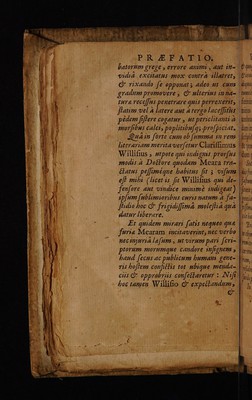 PRÆFATIO.
batorum grege, errore animi, aut in-
vidiâ excitatus mox contrà illatret,
& rixando se opponat; adeo ut cum
gradum promovere, & ulterius in na-
turæ recessus penetrare quis perrexerit,
statim vel à latere aut à tergo lacessitus
pedem sistere cogatur, ac periclitanti à
morsibus calci, poplitéusq; prospiciat.
Quâ in sorte cum ob summa in rem
literariam merita versetur Clarissimus
Willisius, utpote qui indignis prorsus
modis à Doctore quodam Meara tra-
ctatus pessiméque habitus sit; visum
est mihi (licet is sit Willisius qui de-
fensore aut vindice minimè indigeat)
ipsum sublimioribus curis natum à fa-
stidio hoc & frigidissimâ molestiâ quâ
datur liberare.
Et quidem mirari satis nequeo quæ
furia Mearam incitaverint, nec verbo
nec injuriâ læsum, ut virum pari scri-
ptorum morumque candore insignem,
haud secus ac publicum humani gene-
ris hostem confictis tot ubique menda-
ciis & opprobriis consectaretur: Nisi
hoc tamen Willisio & expectandum,
&